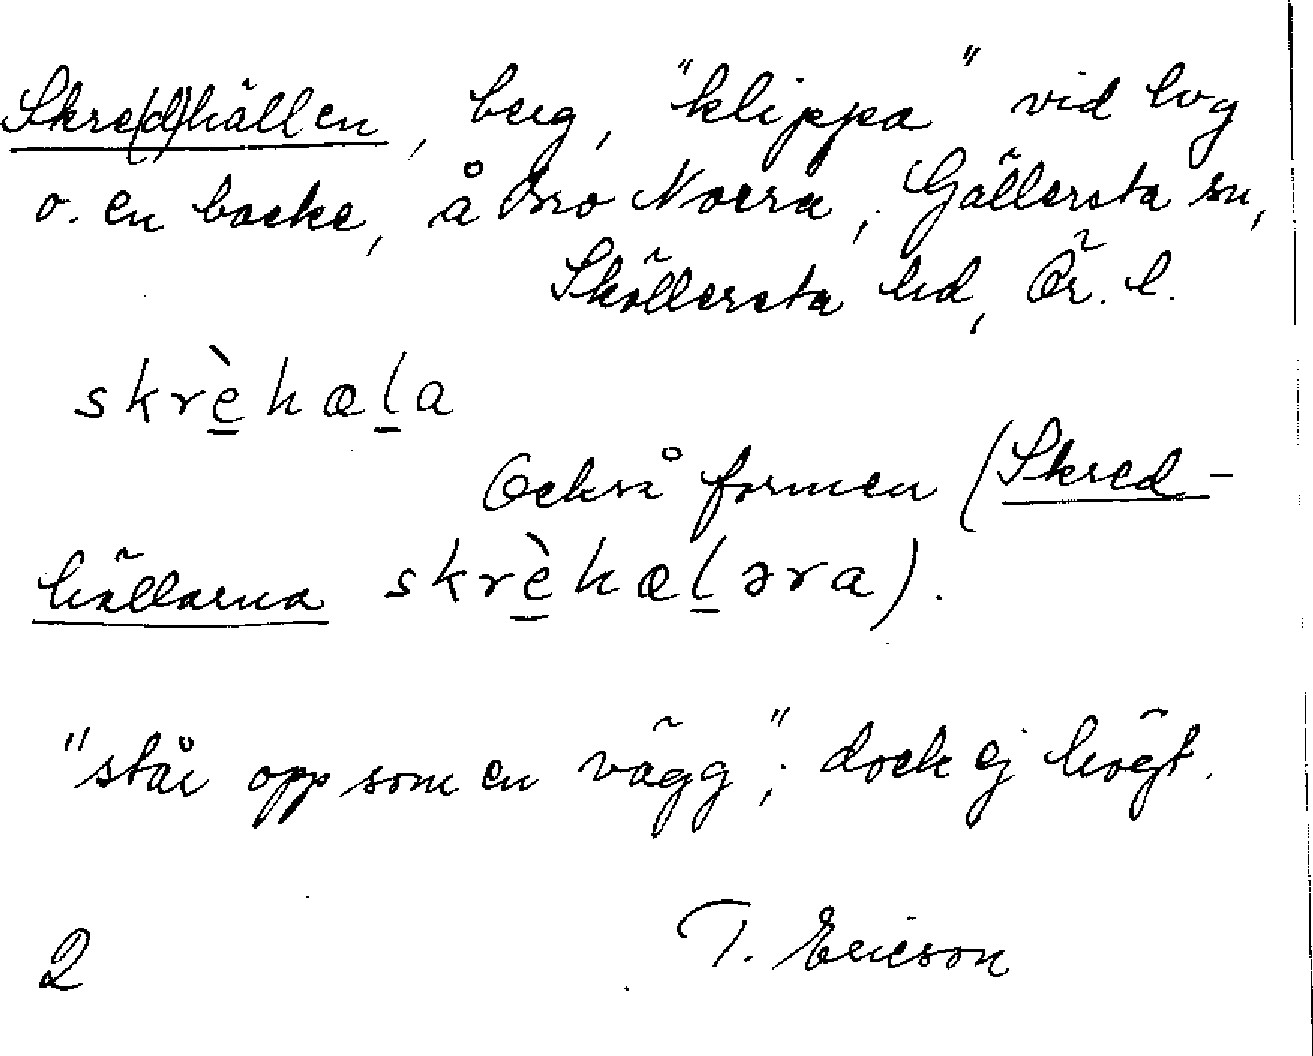 Skre(d)hällen, berg, "klippa" vid lvg
o. en backe, å Bro Norra, Gällersta sn,
Sköllersta hd, Ör. l.
skrèhæla
Också formen (Skred-
hällarna skrèhæləra).
"står opp som en vägg"; dock ej högt.
T. Ericson
2